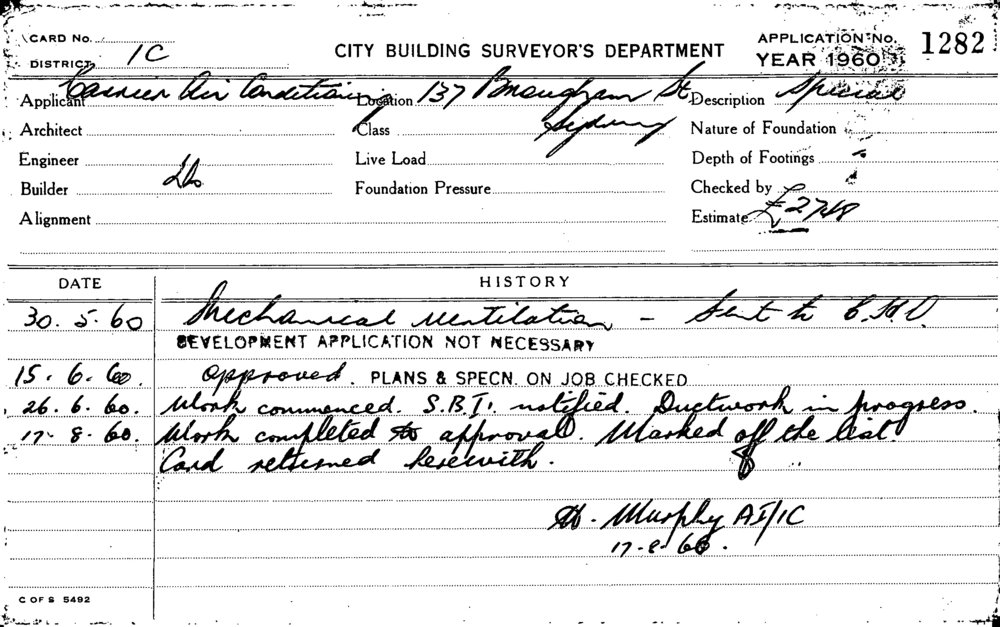 CARD No.
DISTRICT 1C
CITY BUILDING SURVEYOR'S DEPARTMENT
APPLICATION No. 1282
YEAR 1960
Applicant Carrier Air Conditioning Location 137 St Description Special
Architect Class Sydney Nature of Foundation
Engineer Live Load Depth of Footings
Builder do Foundation Pressure Checked by
Alignment Estimate £2748
DATE HISTORY
30. 5. 60 Mechanical Ventilation - Sent to
DEVELOPMENT APPLICATION NOT NECESSARY
15. 6. 60. Approved. PLANS & SPECN. ON JOB CHECKED
26. 6. 60. Work commenced. S.B.I. notified. Ductwork in progress.
17. 8. 60. Work completed to approval. Marked off the list.
Card returned herewith.
Murphy AI/1C
17-8-60.
C OF S 5492